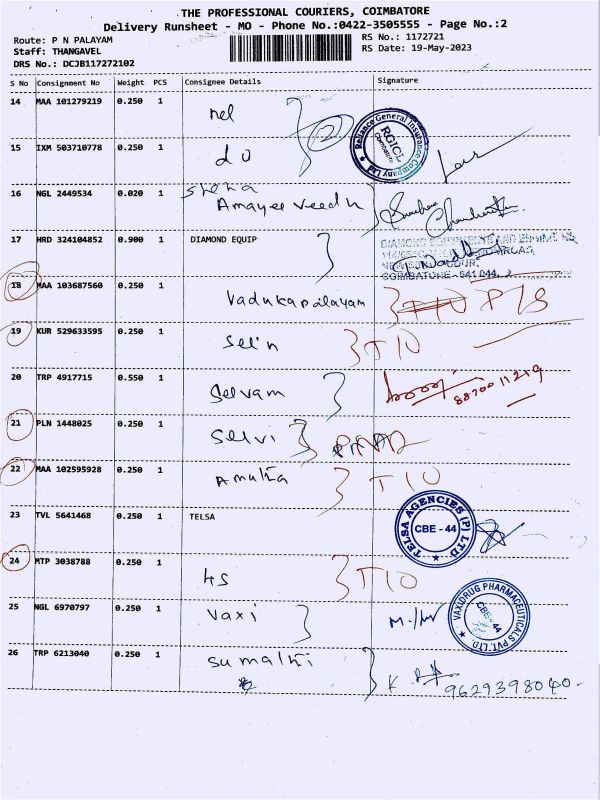 THE PROFESSIONAL COURIERS, COIMBATORE
Delivery Runsheet - MO - Phone No.:0422-3505555 - Page No.:2
Route: P N PALAYAM
Staff: THANGAVEL
DRS No.: DCJB117272102
RS No.: 1172721
RS Date: 19-May-2023
S No Consignment No Weight PCS Consignee Details Signature
14 MAA 101279219 0.250 1 nel 2
Reliance General Insurance Company Ltd
RGICL
Coimbatore
15 IXM 503710778 0.250 1 do
16 NGL 2449534 0.020 1 Amayee veedh
17 HRD 324104852 0.900 1 DIAMOND EQUIP
COIMBATORE - 641 044.
18 MAA 103687560 0.250 1 Vadukapalayam
19 KUR 529633595 0.250 1 Selin TIO
20 TRP 4917715 0.550 1 Selvam
8870011219
21 PLN 1448025 0.250 1 Selvi
22 MAA 102595928 0.250 1 Amutha TIO
23 TVL 5641468 0.250 1 TELSA
TELSA AGENCIES (P) LTD
CBE - 44
24 MTP 3038788 0.250 1 HS TIO
25 NGL 6970797 0.250 1 Vaxi
VAXIDRUG PHARMACEUTICALS PVT. LTD.
CBE-44
26 TRP 6213040 0.250 1 Sumathi
9629398040